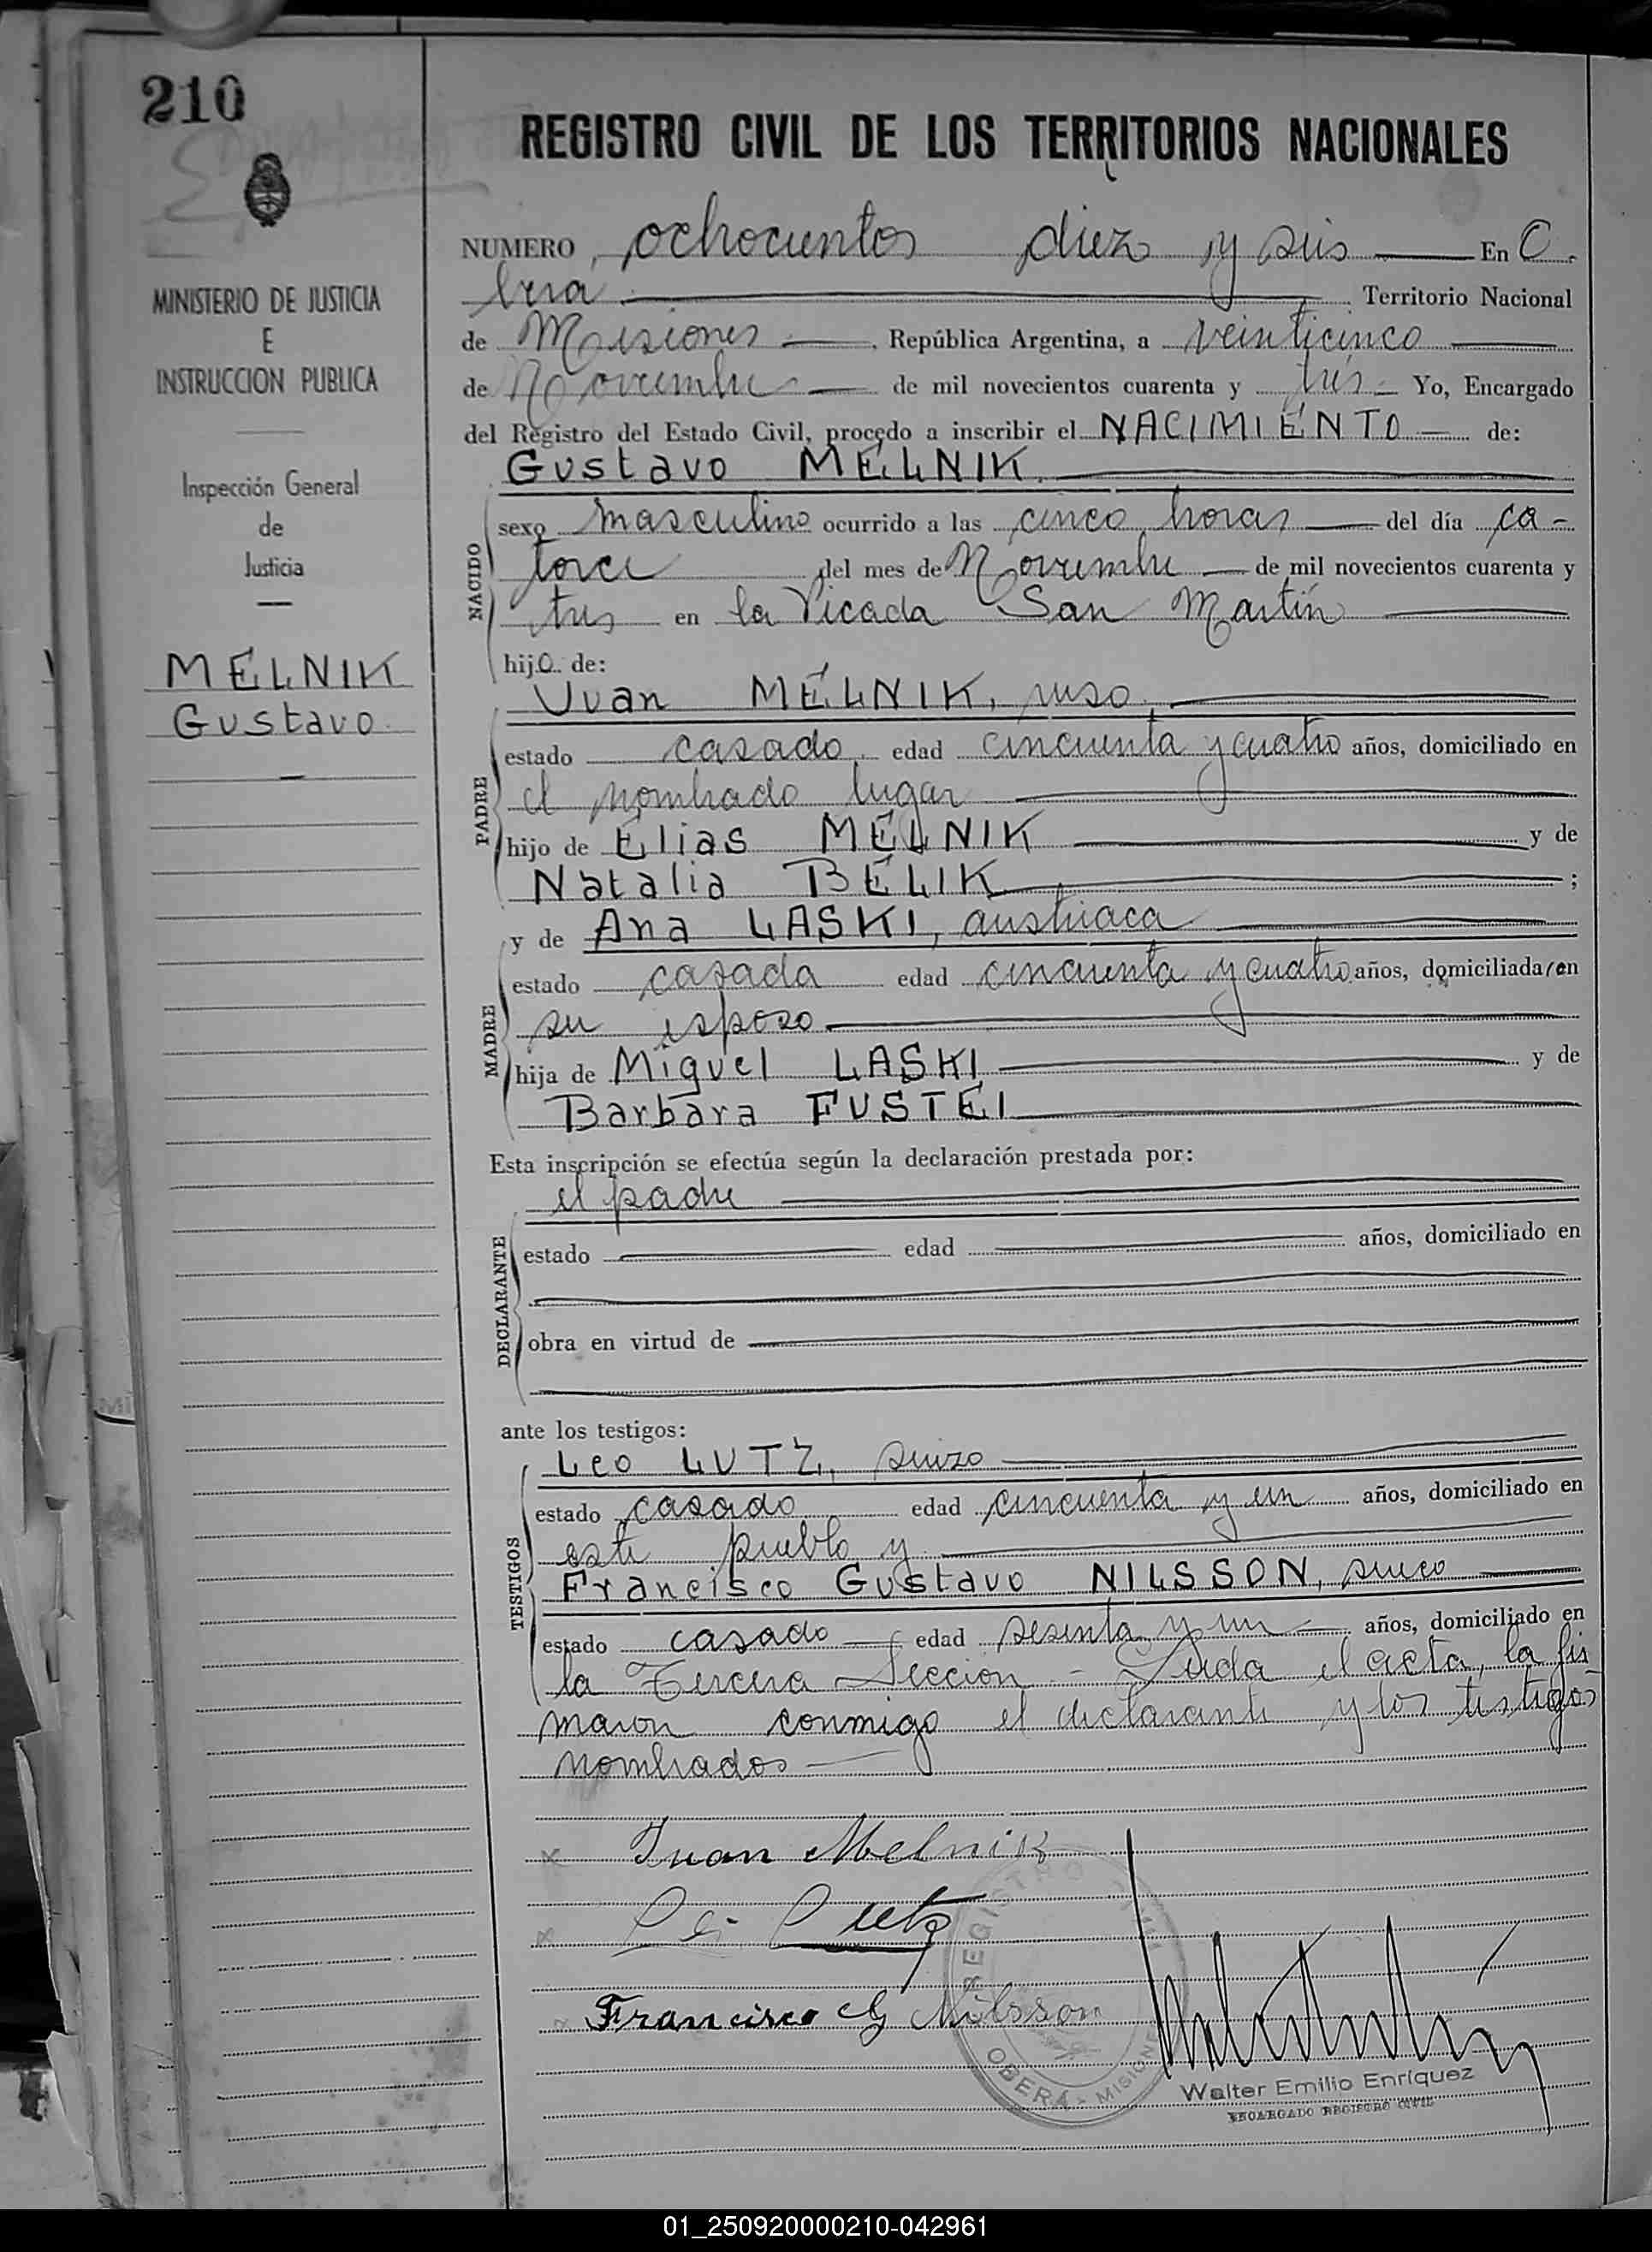 210
MINISTERIO DE JUSTICIA
E
INSTRUCCION PUBLICA
Inspección General
de
Justicia
MELNIK
Gustavo
REGISTRO CIVIL DE LOS TERRITORIOS NACIONALES
NUMERO ochocientos diez y seis En O
bera Territorio Nacional
de Misiones República Argentina, a veinticinco
de Noviembre de mil novecientos cuarenta y tres Yo, Encargado
del Registro del Estado Civil, procedo a inscribir el NACIMIENTO de:
Gustavo MELNIK.
NACIDO
sexo masculino ocurrido a las cinco horas del día ca-
torce del mes de Noviembre de mil novecientos cuarenta y
tres en la Picada San Martín
hijo de:
Juan MELNIK, ruso,
PADRE
estado casado edad cincuenta y cuatro años, domiciliado en
el nombrado lugar
hijo de Elias MELNIK y de
Natalia BELIK ;
y de Ana LASKI, austriaca
MADRE
estado casada edad cincuenta y cuatro años, domiciliada en
su esposo
hija de Miguel LASKI y de
Barbara FUSTEI
Esta inscripción se efectúa según la declaración prestada por:
el padre
DECLARANTE
estado edad años, domiciliado en
obra en virtud de
ante los testigos:
Leo LUTZ, suizo
TESTIGOS
estado casado edad cincuenta y un años, domiciliado en
este pueblo y
Francisco Gustavo NILSSON, sueco
estado casado edad sesenta y un años, domiciliado en
la Tercera Seccion - Leida el acta, la fir
maron conmigo el declarante y los testigos
nombrados
Juan Melnik
Leo Lutz
Francisco G Nilsson
REGISTRO CIVIL
OBERÁ - MISIONES
Walter Emilio Enríquez
ENCARGADO REGISTRO CIVIL
01_250920000210-042961